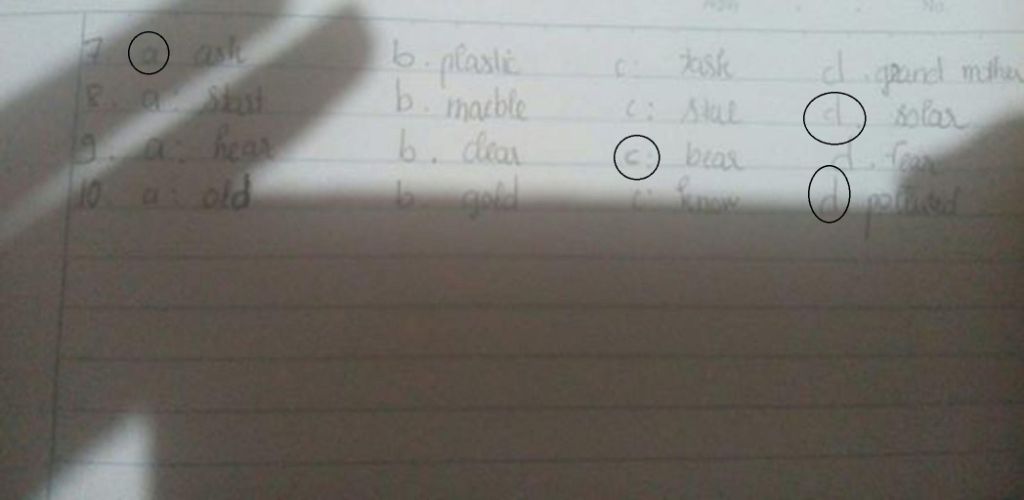 No.
7 a ask b. plastic c: task d. grand mother
8. a: start b. marble c: d solar
9. a: hear b. clear c: bear d. fear
10. a: old b. gold c: know d